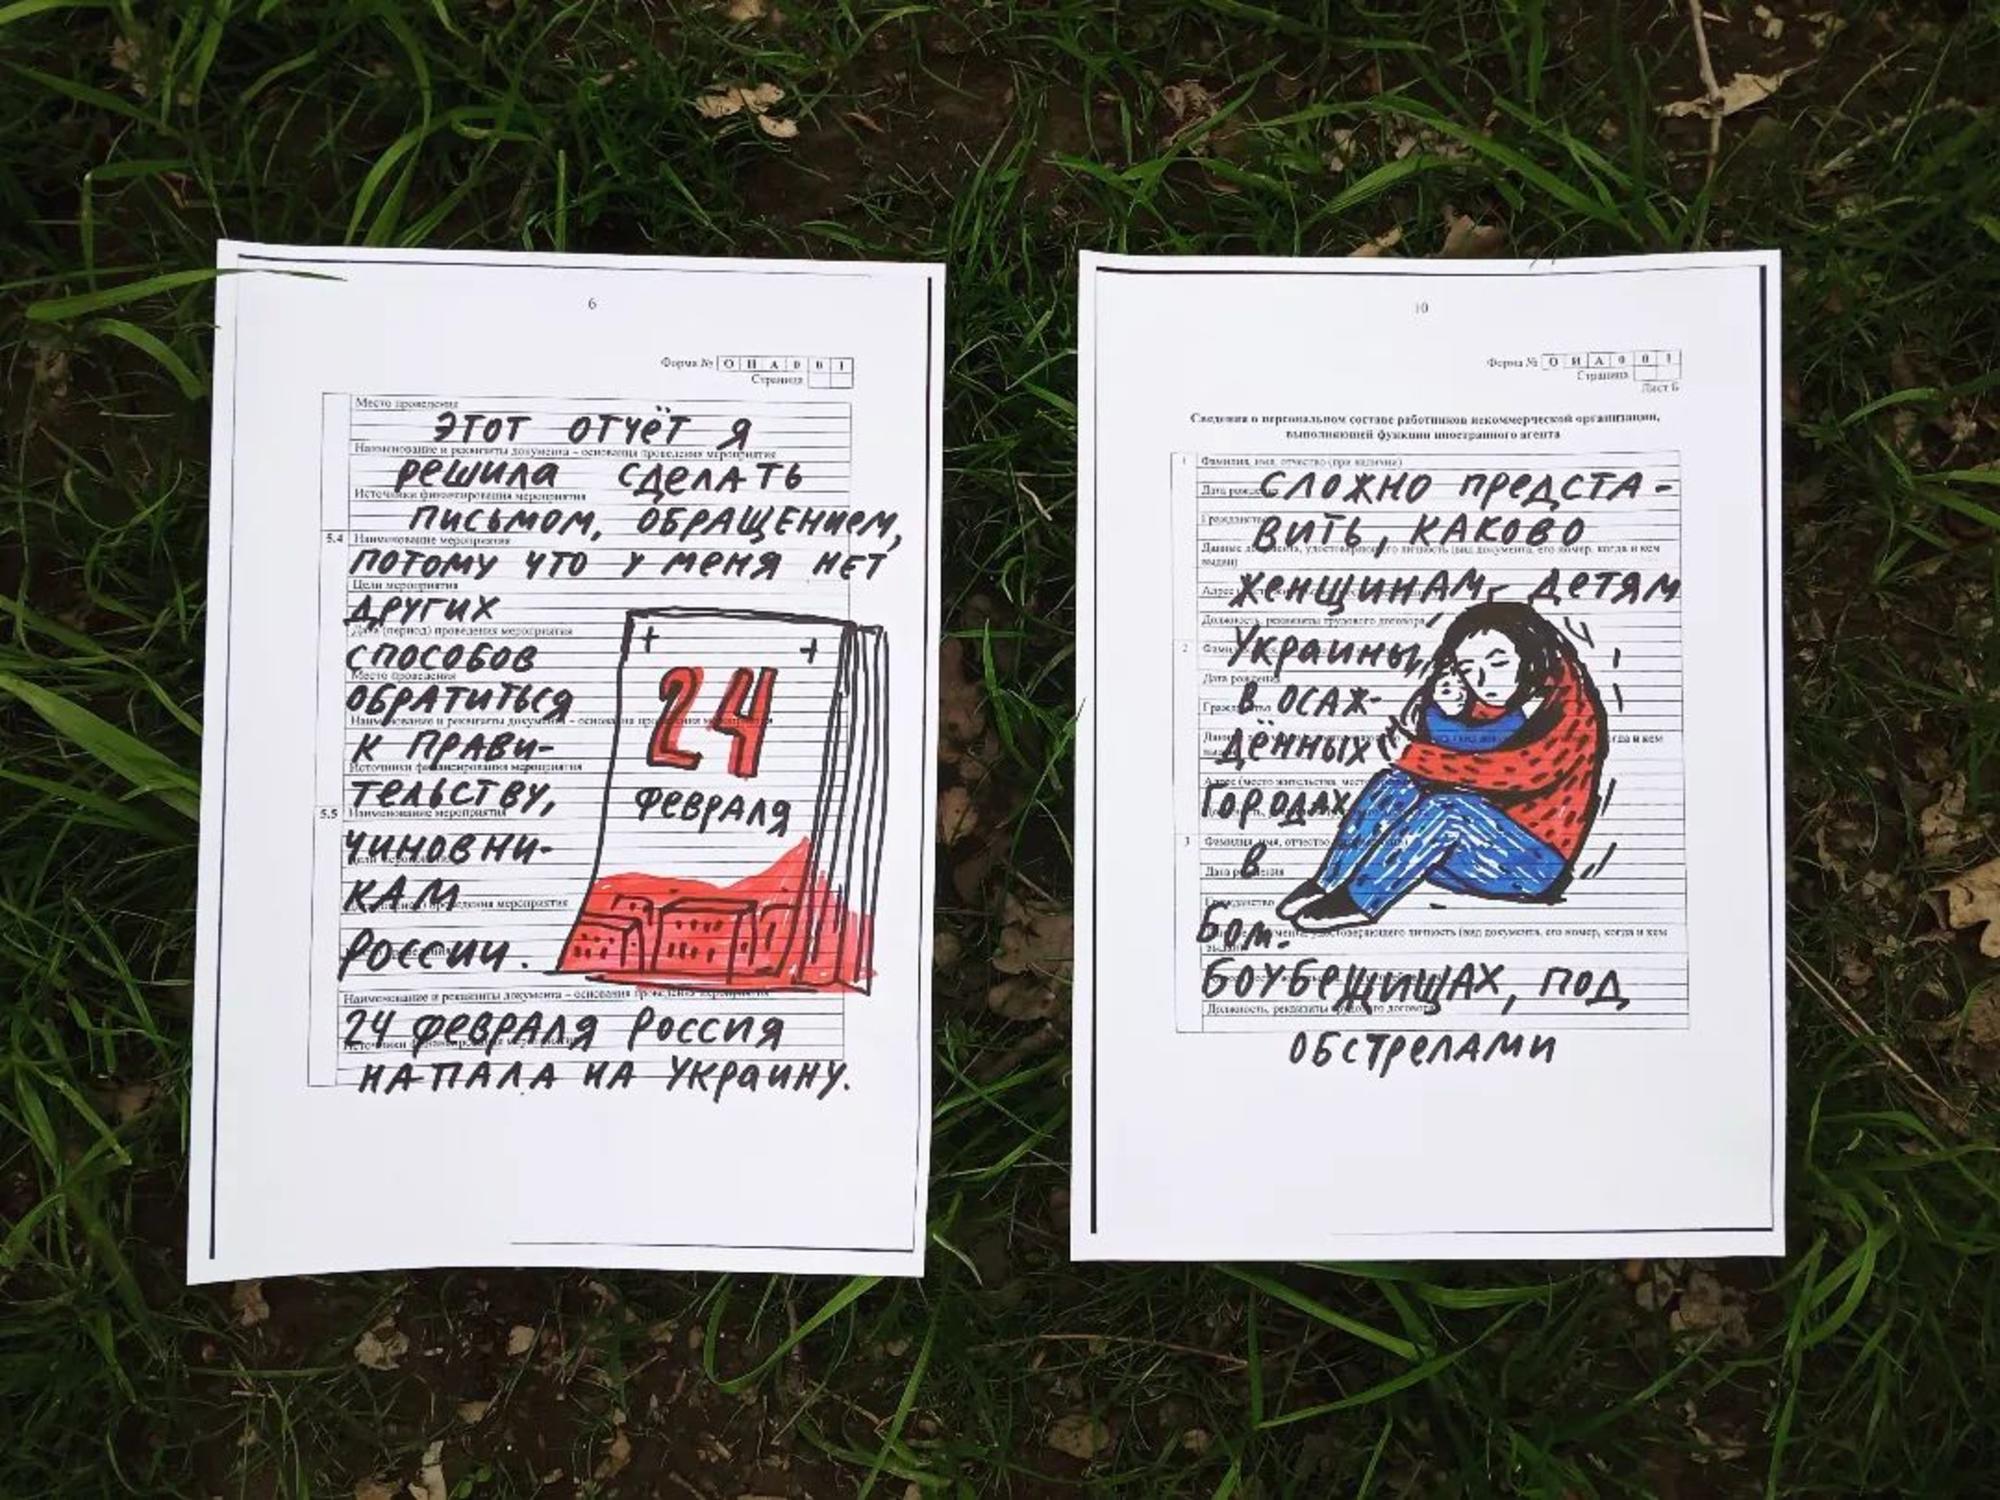 6
Форма № О И А 0 0 1
Страница
Место проведения
ЭТОТ ОТЧЁТ Я
Наименование и реквизиты документа – основания проведения мероприятия
РЕШИЛА СДЕЛАТЬ
Источники финансирования мероприятия
ПИСЬМОМ, ОБРАЩЕНИЕМ,
5.4 Наименование мероприятия
ПОТОМУ ЧТО У МЕНЯ НЕТ
Цели мероприятия
ДРУГИХ
Дата (период) проведения мероприятия
СПОСОБОВ
Место проведения
ОБРАТИТЬСЯ
Наименование и реквизиты документа – основания проведения мероприятия
К ПРАВИ-
Источники финансирования мероприятия
ТЕЛЬСТВУ,
5.5 Наименование мероприятия
ЧИНОВНИ-
Цели мероприятия
КАМ
проведения мероприятия
РОССИИ.
24
ФЕВРАЛЯ
Наименование и реквизиты документа – основания проведения мероприятия
24 ФЕВРАЛЯ РОССИЯ
Источники финансирования мероприятия
НАПАЛА НА УКРАИНУ.
10
Форма № О И А 0 0 1
Страница
Лист Б
Сведения о персональном составе работников некоммерческой организации,
выполняющей функции иностранного агента
1 Фамилия, имя, отчество (при наличии)
СЛОЖНО ПРЕДСТА-
Дата рождения
Гражданство
ВИТЬ, КАКОВО
Данные документа, удостоверяющего личность (вид документа, его номер, когда и кем
выдан)
ЖЕНЩИНАМ, ДЕТЯМ
Должность, реквизиты трудового договора
2
УКРАИНЫ,
Дата рождения
В ОСАЖ-
Гражданство
ДЁННЫХ
Адрес (место жительства,
ГОРОДАХ
3 Фамилия, имя, отчество
В
Дата рождения
Гражданство
БОМ-
удостоверяющего личность (вид документа, его номер, когда и кем
БОУБЕЖИЩАХ, ПОД
Должность, реквизиты трудового договора
ОБСТРЕЛАМИ